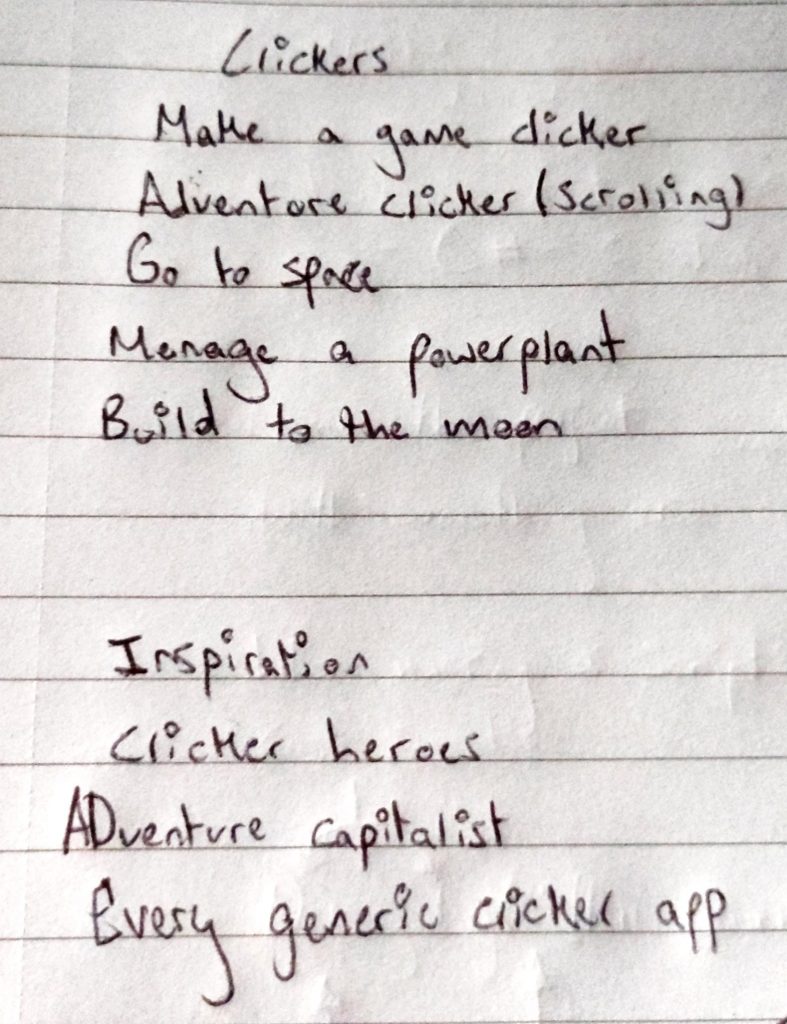 Clickers
Make a game clicker
Adventure clicker (Scrolling)
Go to space
Manage a powerplant
Build to the moon
Inspiration
Clicker heroes
ADventure capitalist
Every generic clicker app